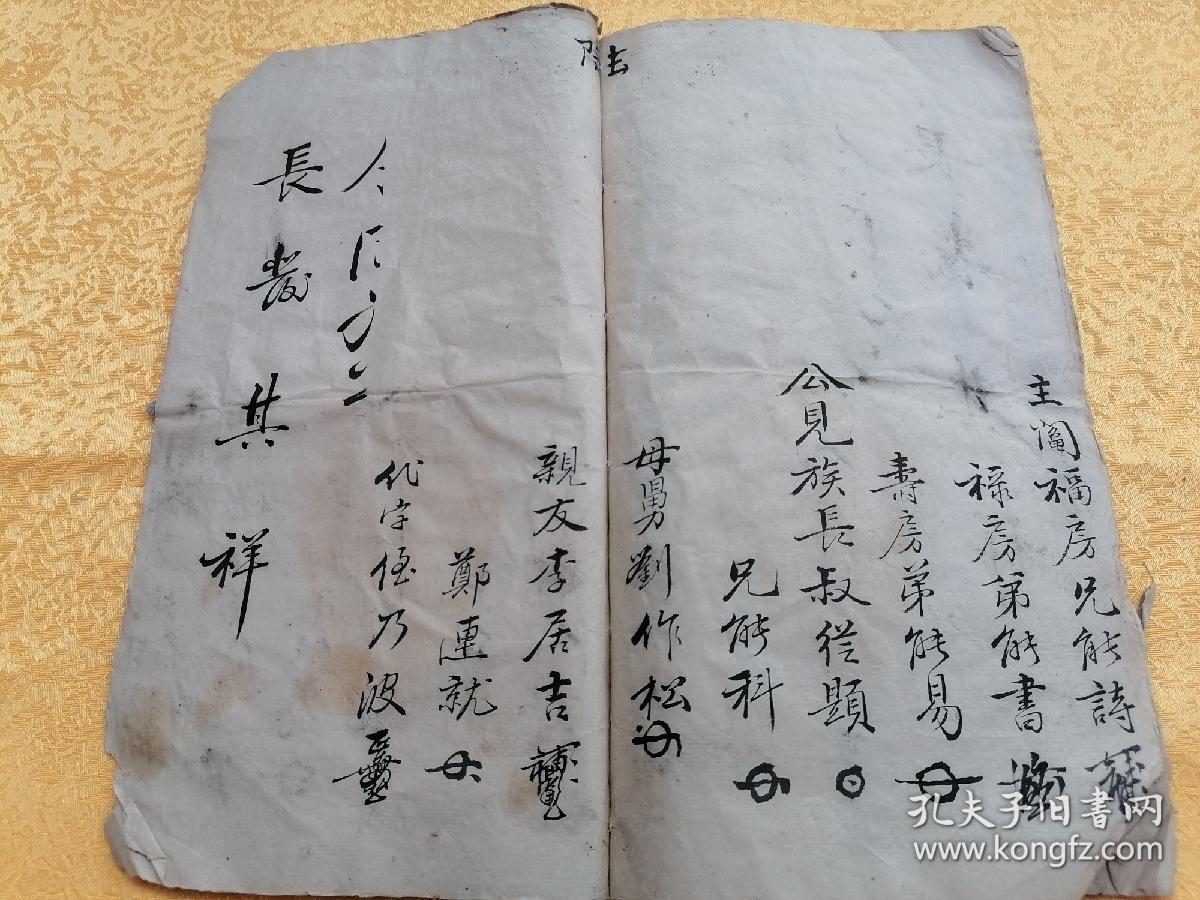 主阄福房兄能詩
禄房弟能書
壽房弟能易
公見族長叔從顯
兄能科
母舅劉作松
親友李居吉
鄭連就
代字侄乃波
長發其祥
孔夫子旧书网
www.kongfz.com